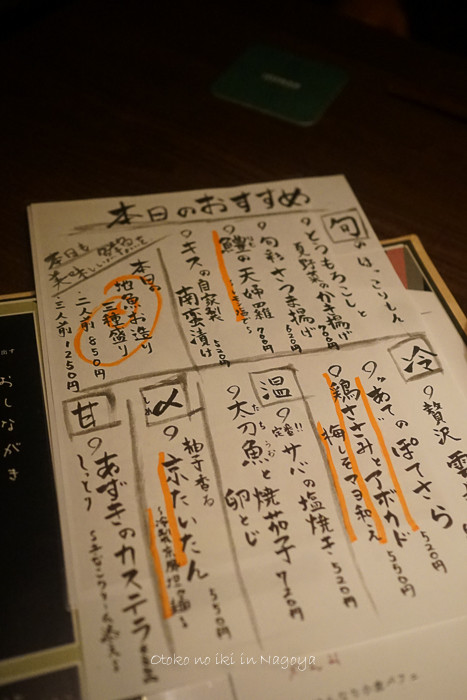 本日のおすすめ
旬のほっこりもん
とうもろこしと
夏野菜のかき揚げ 700円
旬彩さつま揚げ 620円
鱧の天婦羅 700円
キスの自家製
南蛮漬け 520円
本日の
地魚お造り
三種盛り
二人前 850円
三人前 1250円
冷
贅沢
あての ぽてさら 520円
鶏ささみとアボカド
梅しそマヨ和え 550円
温
定番!!
サバの塩焼き 520円
太刀魚と焼茄子
卵とじ 720円
〆
柚子香る
京たいたん 550円
甘
あずきのカステラ
しっとり
おしながき
Otoko no iki in Nagoya